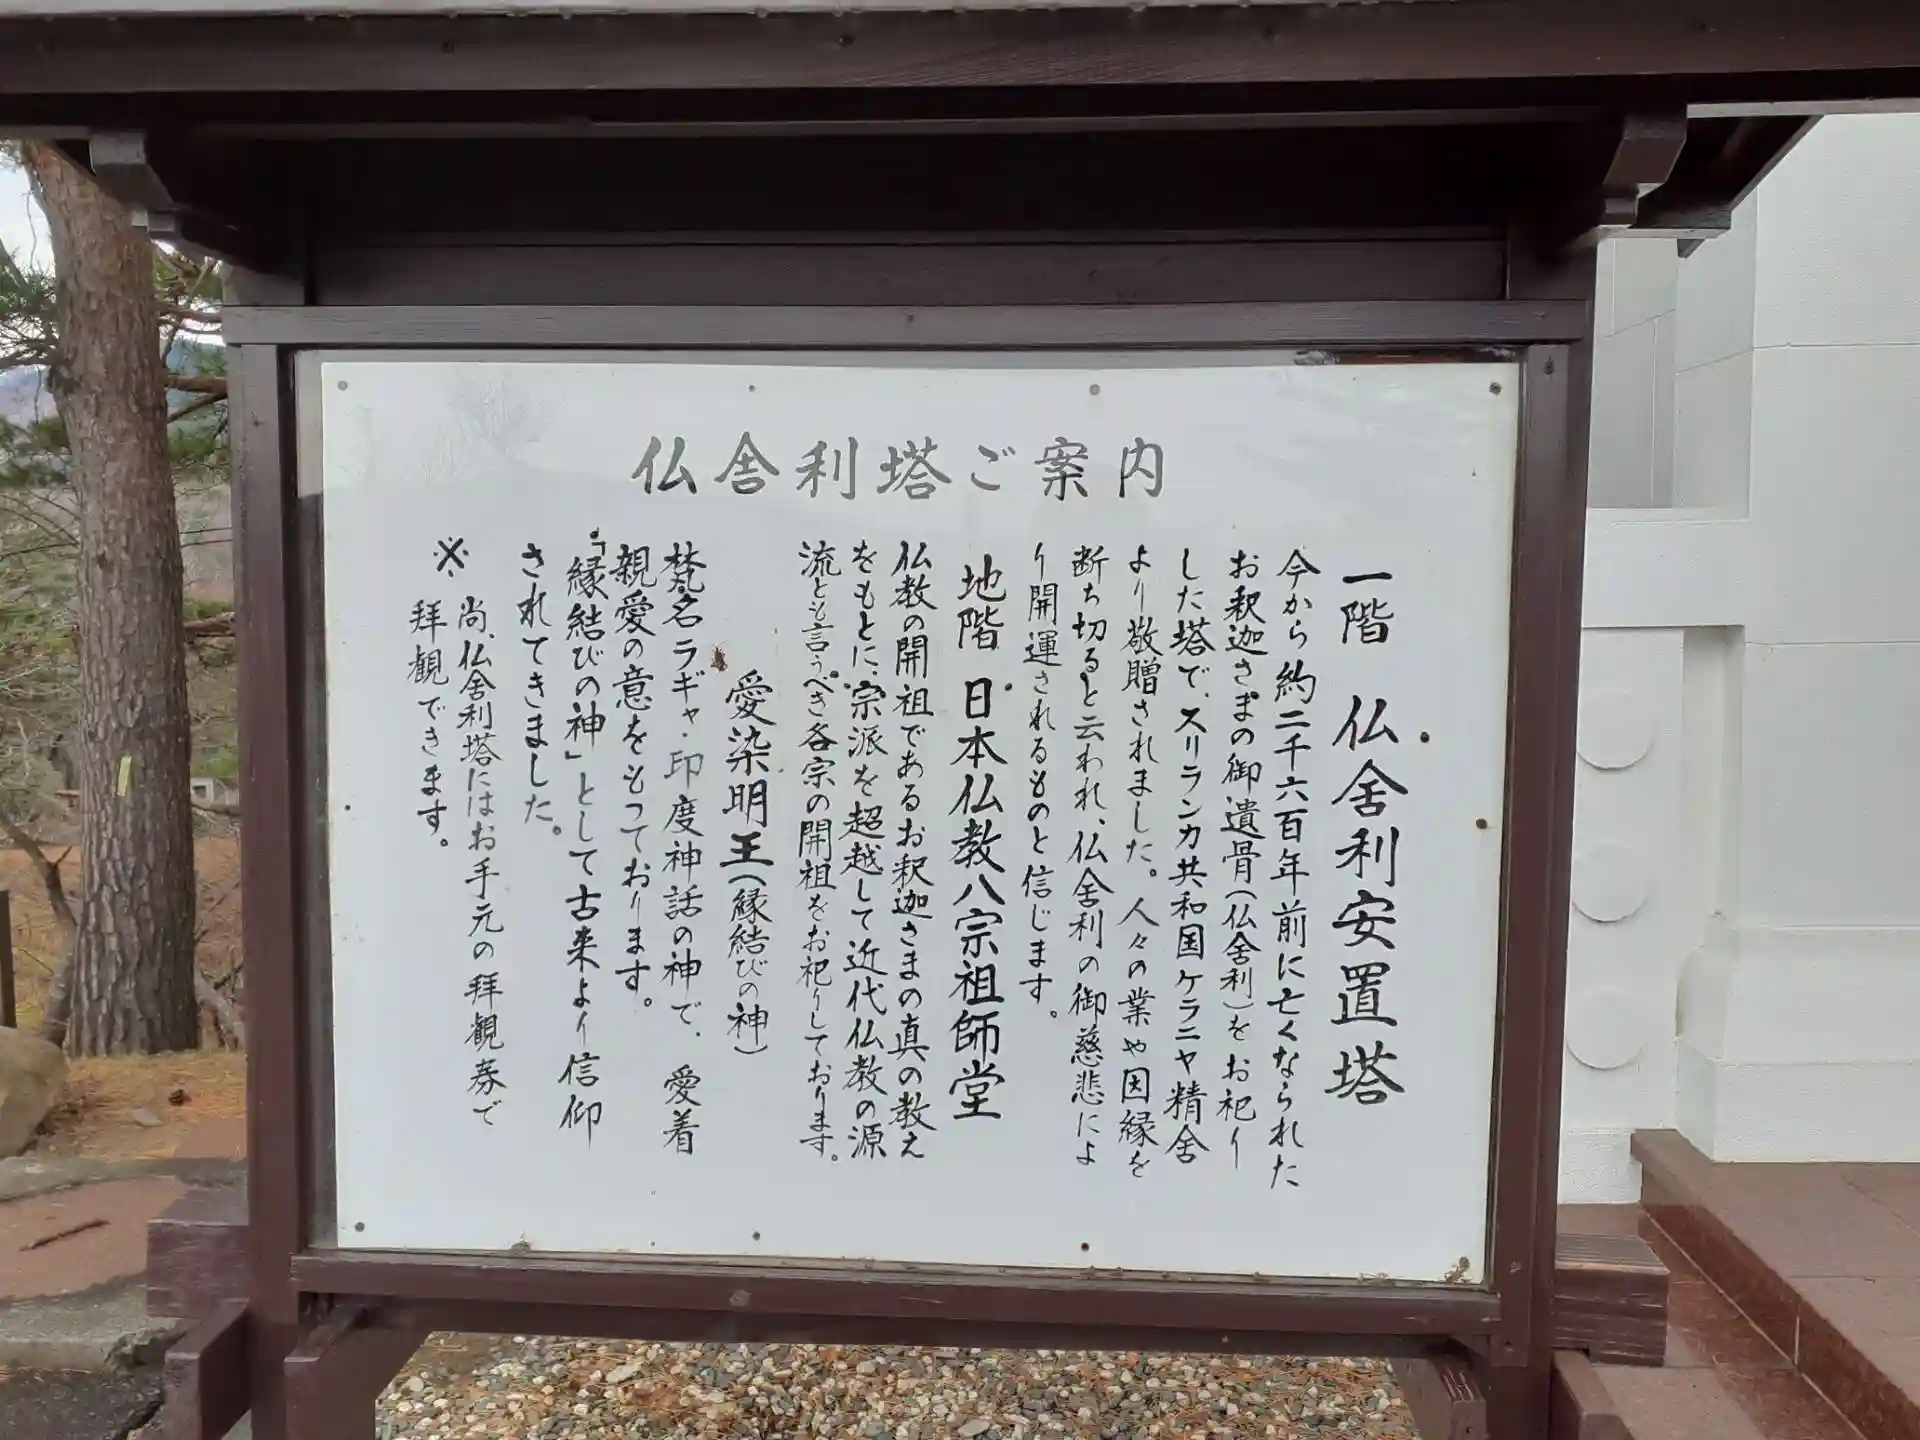 仏舎利塔ご案内
一階 仏舎利安置塔
今から約二千六百年前に亡くなられた
お釈迦さまの御遺骨(仏舎利)をお祀り
した塔で、スリランカ共和国ケラニヤ精舎
より敬贈されました。人々の業や因縁を
断ち切ると云われ、仏舎利の御慈悲によ
り開運されるものと信じます。
地階 日本仏教八宗祖師堂
仏教の開祖であるお釈迦さまの真の教え
をもとに、宗派を超越して近代仏教の源
流とも言うべき各宗の開祖をお祀りしております。
愛染明王(縁結びの神)
梵名ラギャ・印度神話の神で、愛着
親愛の意をもっております。
「縁結びの神」として古来より信仰
されてきました。
※ 尚、仏舎利塔にはお手元の拝観券で
拝観できます。